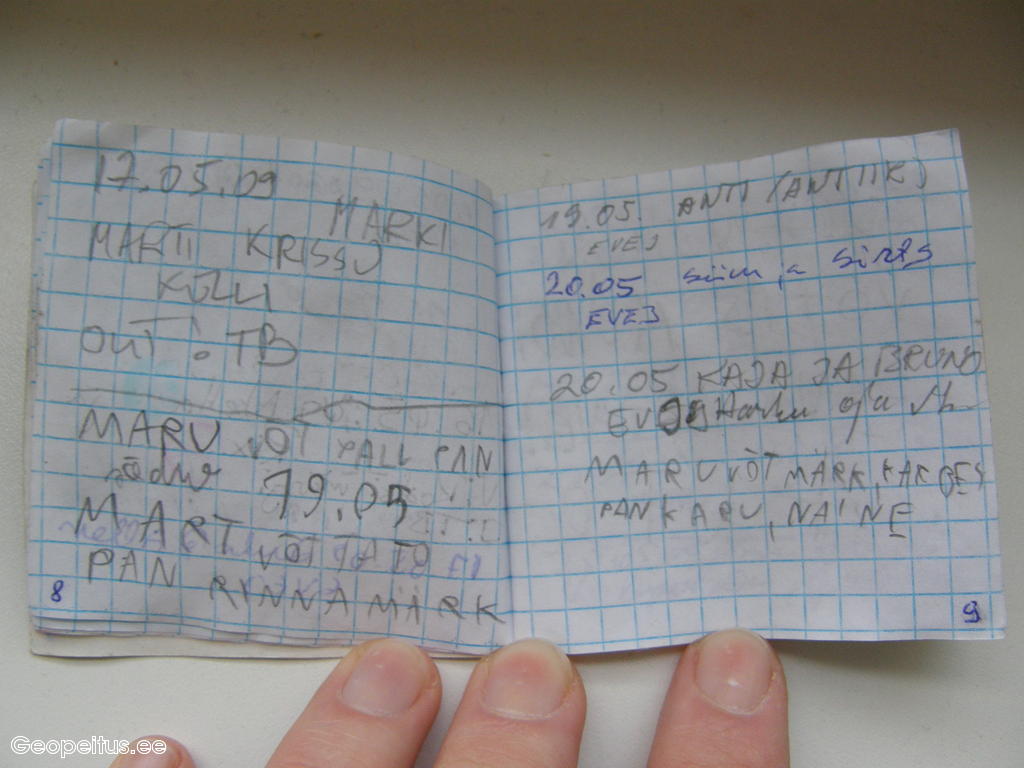 17.05.09
MARKI
MARTI KRISSU
KÜLLI
OUT: TB
MARU VÕT PALL PAN
sõdur 19.05
MART VÕT TATO
PAN RINNAMÄRK
8
19.05. ANTI (ANTTIK)
EVEJ
20.05 siim ja sirts
EVEJ
20.05 KAJA JA BRUNO
Harku
MARU VÕT MÄRK,
PAN KARU, NAINE
9
Geopeitus.ee